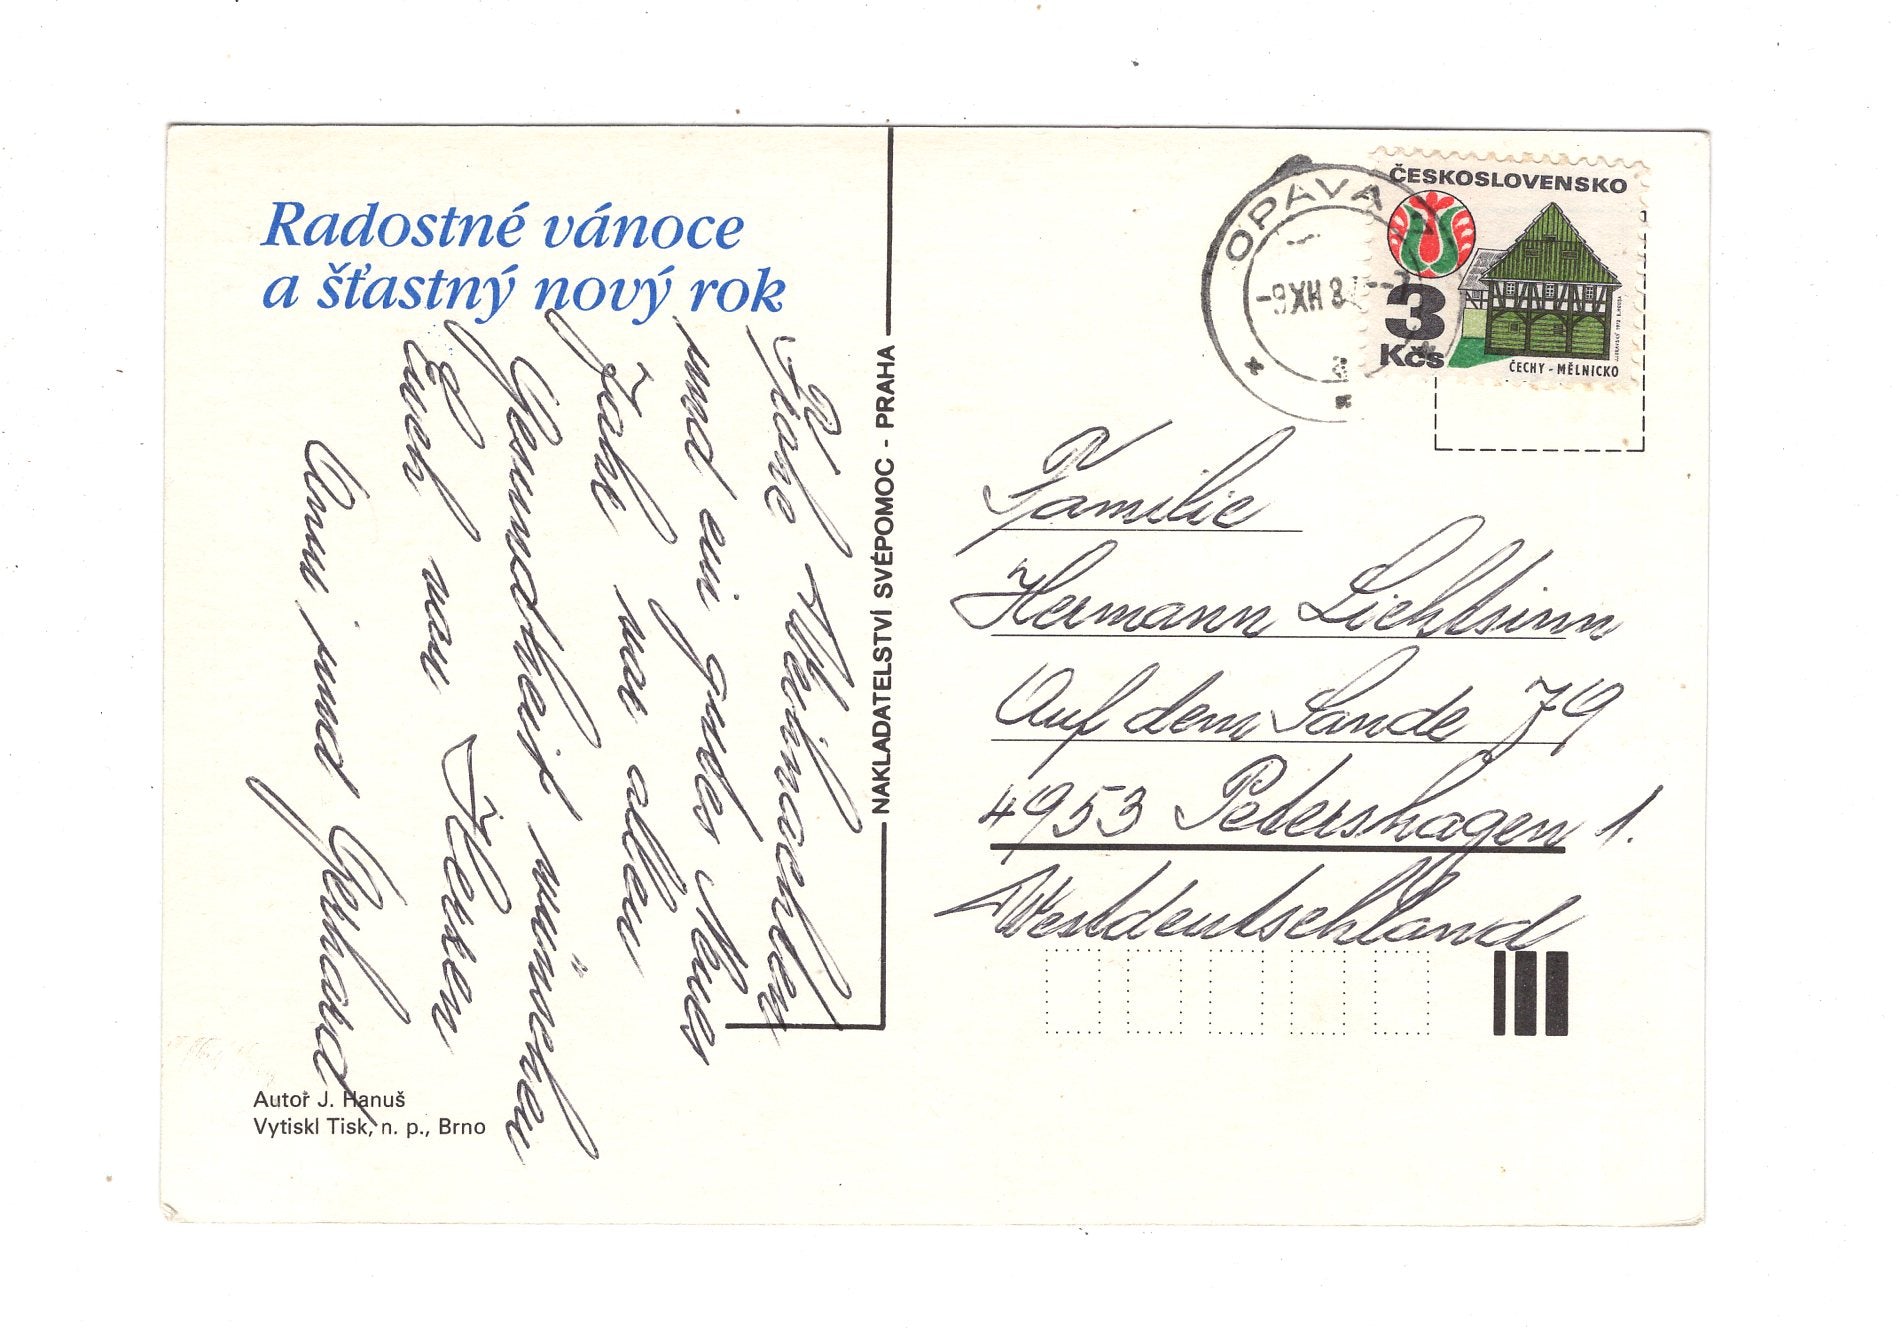 Radostné vánoce
a šťastný nový rok
Frohe Weihnachten
und ein gutes Neues
Jahr vor allem
Gesundheit wünschen
Euch von Herzen
Anni und Gerhard
Autor J. Hanuš
Vytiskl Tisk, n. p., Brno
NAKLADATELSTVÍ SVÉPOMOC - PRAHA
OPAVA
-9.XII.8
ČESKOSLOVENSKO
3
Kčs
ČECHY - MĚLNICKO
Familie
Hermann Lichtsinn
Auf dem Sande 79
4953 Petershagen 1.
Westdeutschland